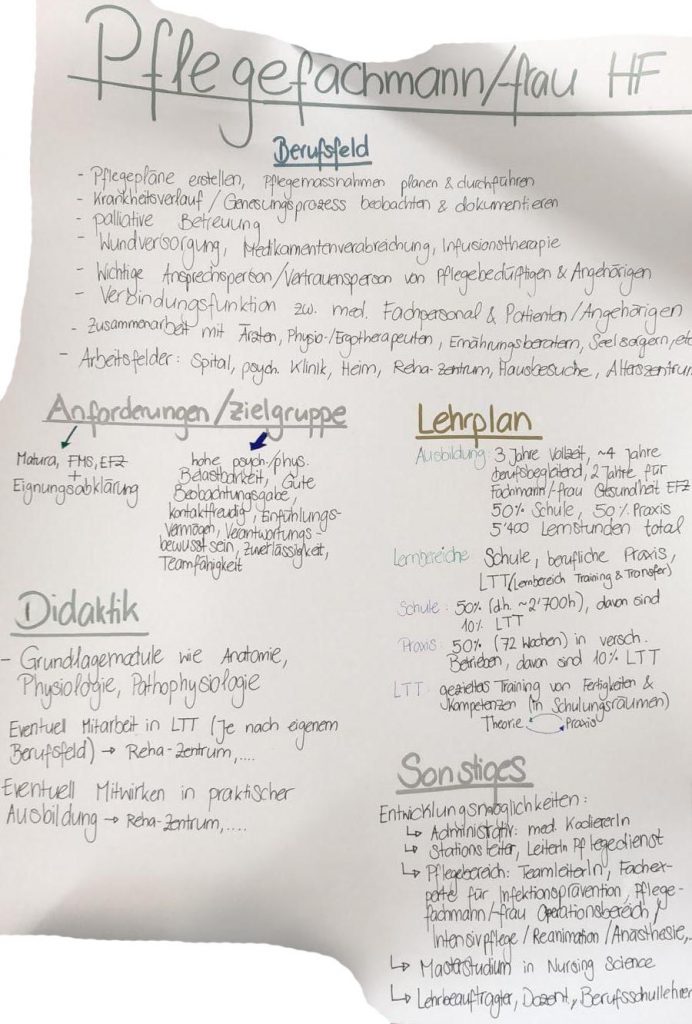 Pflegefachmann/-frau HF
Berufsfeld
- Pflegepläne erstellen, Pflegemassnahmen planen & durchführen
- Krankheitsverlauf / Genesungsprozess beobachten & dokumentieren
- palliative Betreuung
- Wundversorgung, Medikamentenverabreichung, Infusionstherapie
- Wichtige Ansprechsperson/Vertrauensperson von Pflegebedüftigen & Angehörigen
- Verbindungsfunktion zw. med. Fachpersonal & Patienten/Angehörigen
- Zusammenarbeit mit Ärzten, Physio-/Ergotherapeuten, Ernährungsberatern, Seelsorgern, etc
- Arbeitsfelder: Spital, psych. Klinik, Heim, Reha-Zentrum, Hausbesuche, Alterszentrum
Anforderungen/Zielgruppe
Matura, FMS, EFZ
+
Eignungsabklärung
hohe psych./phys.
Belastbarkeit, Gute
Beobachtungsgabe,
kontaktfreudig, Einfühlungs-
vermögen, Verantwortungs-
bewusstsein, Zuverlässigkeit,
Teamfähigkeit
Didaktik
- Grundlagemodule wie Anatomie,
Physiologie, Pathophysiologie
Eventuell Mitarbeit in LTT (Je nach eigenem
Berufsfeld) → Reha-Zentrum,....
Eventuell Mitwirken in praktischer
Ausbildung → Reha-Zentrum,....
Lehrplan
Ausbildung: 3 Jahre Vollzeit, ~4 Jahre
berufsbegleitend, 2 Jahre für
Fachmann/-frau Gesundheit EFZ
50% Schule, 50% Praxis
5'400 Lernstunden total
Lernbereiche: Schule, berufliche Praxis,
LTT (Lernbereich Training & Transfer)
Schule: 50% (d.h. ~2'700h), davon sind
10% LTT
Praxis: 50% (72 Wochen) in versch.
Betrieben, davon sind 10% LTT
LTT: gezieltes Training von Fertigkeiten &
Kompetenzen (in Schulungsräumen)
Theorie Praxis
Sonstiges
Entwicklungsmöglichkeiten:
↳ Administrativ: med. KodiererIn
↳ Stationsleiter, LeiterIn Pflegedienst
↳ Pflegebereich: TeamleiterIn, Fachex-
perte für Infektionsprävention, Pflege-
fachmann/-frau Operationsbereich /
Intensivpflege / Reanimation / Anästhesie,..
↳ Masterstudium in Nursing Science
↳ Lehrbeauftragter, Dozent, Berufsschullehrer